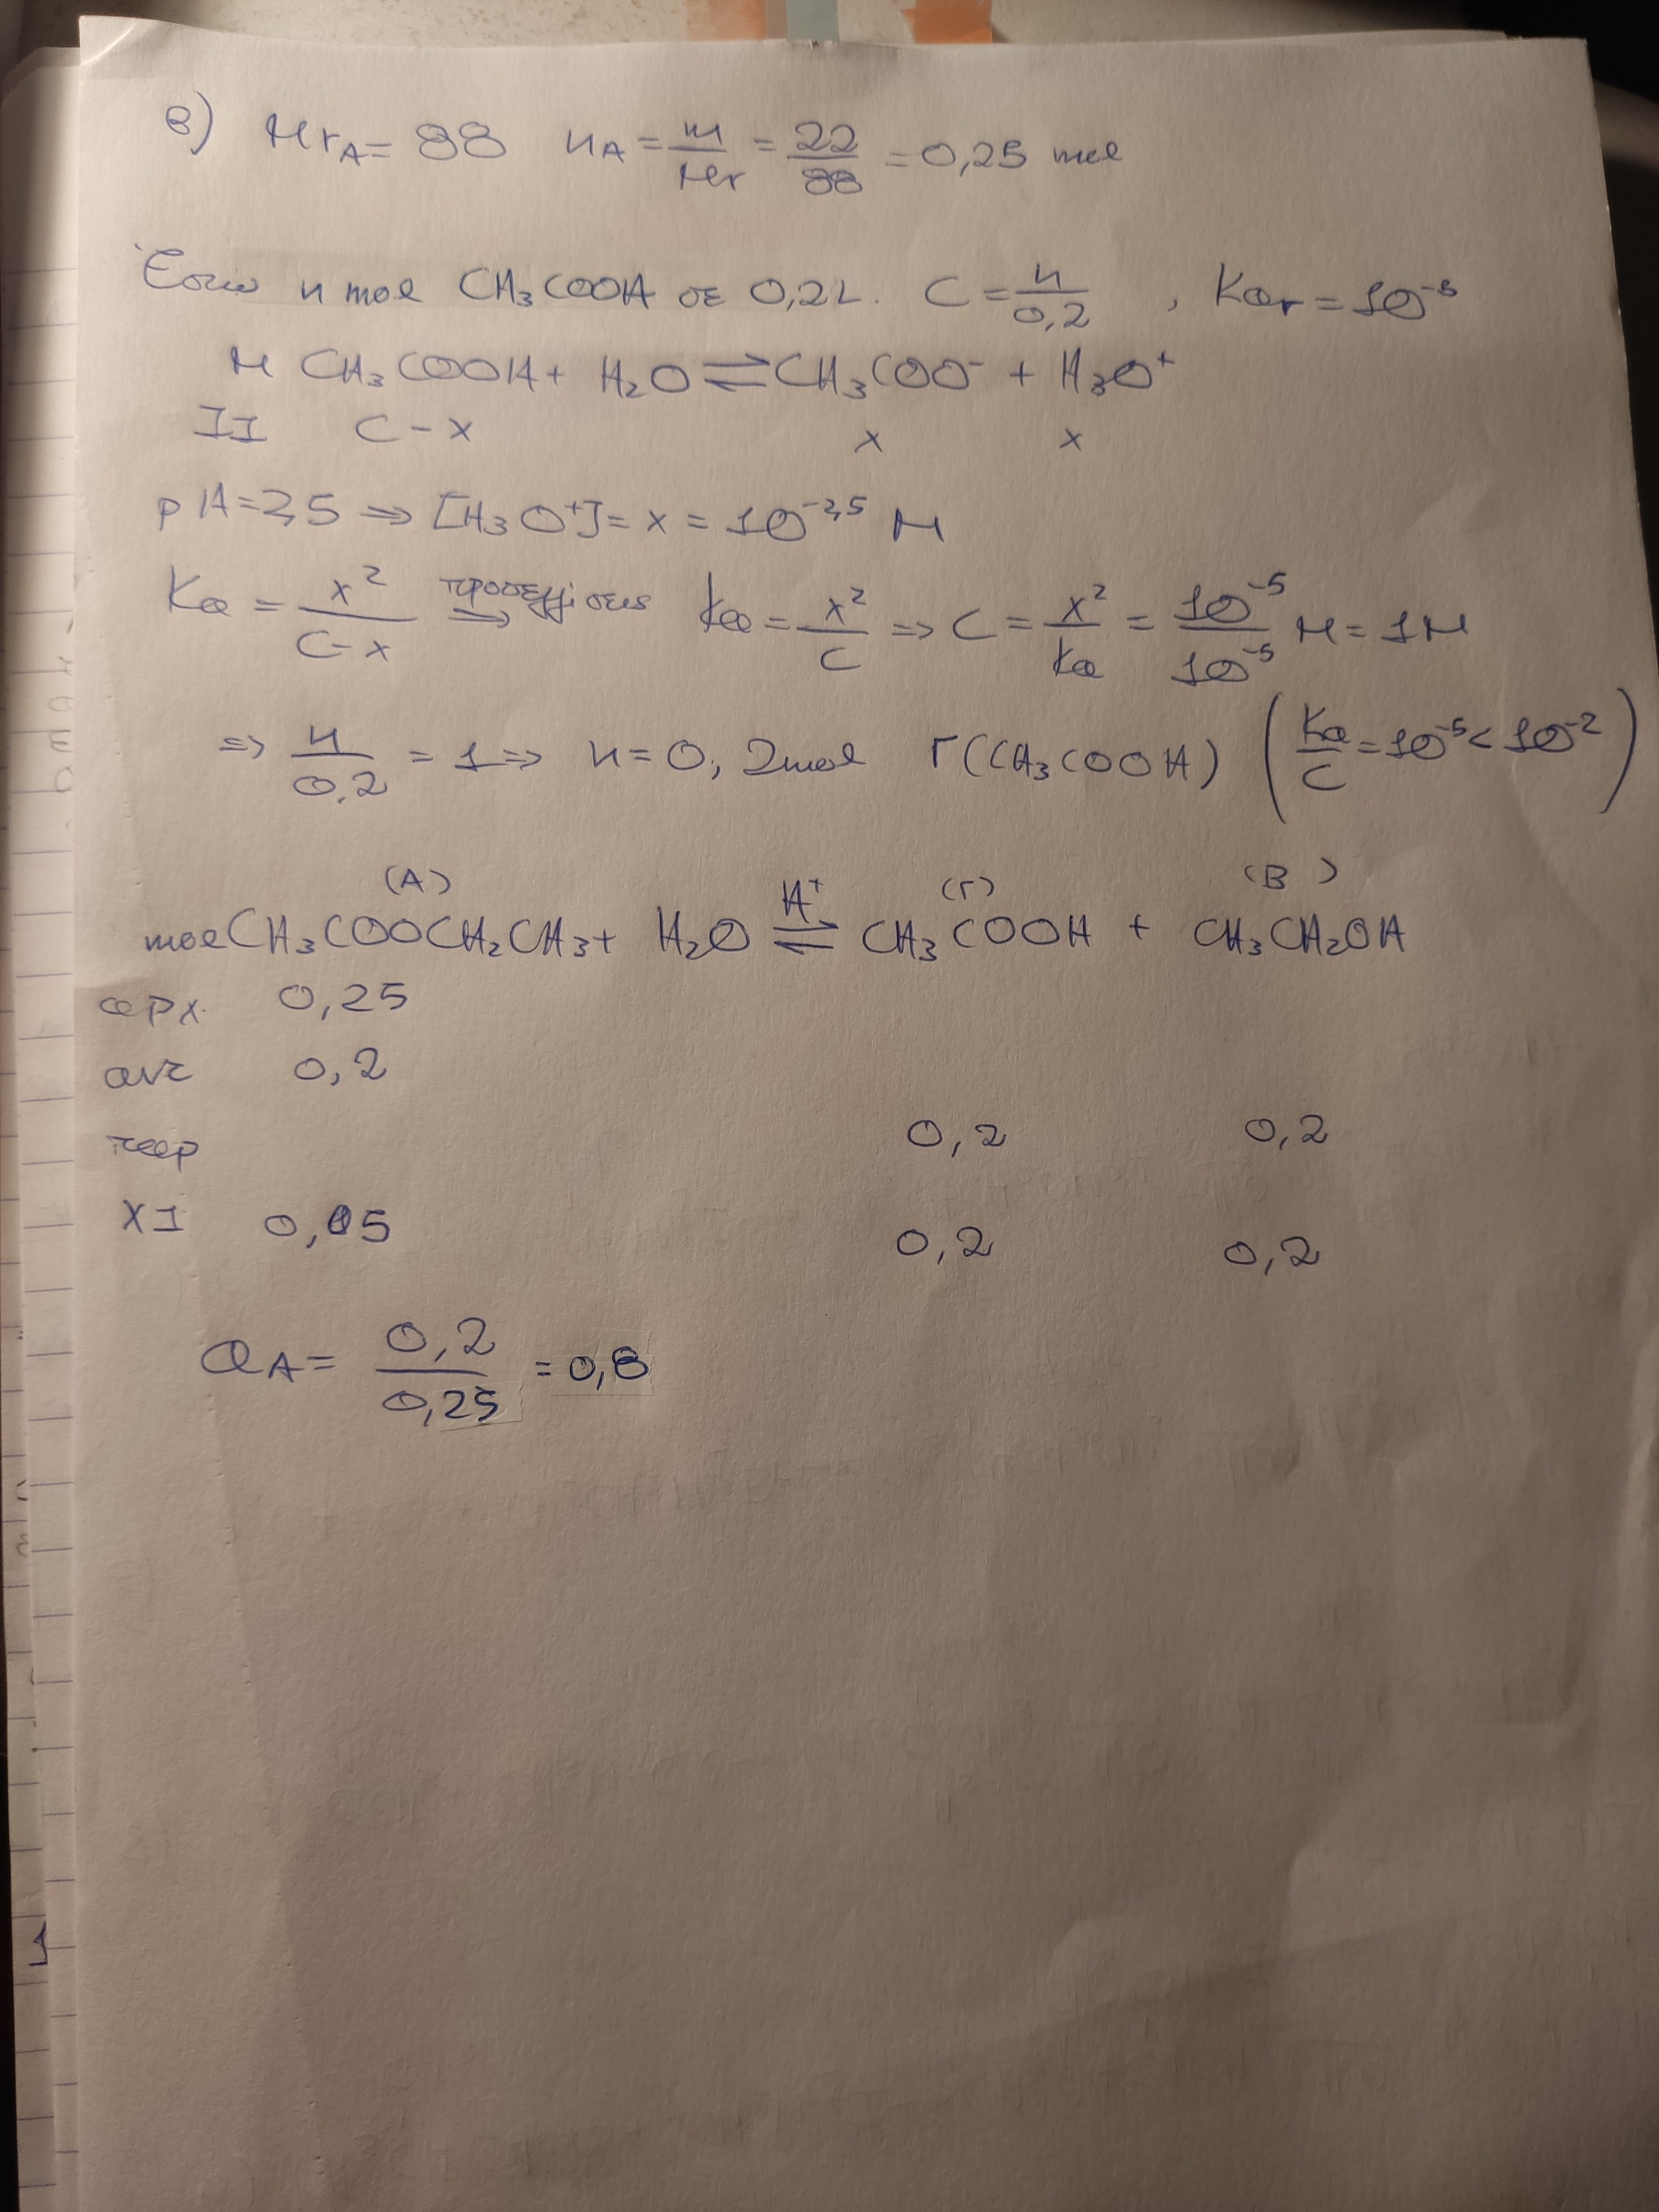 β) Mr_A = 88 n_A = m/Mr = 22/88 = 0,25 mol
Έστω n mol CH₃COOH σε 0,2L. C = n/0,2 , Ka_Γ = 10⁻⁵
M CH₃COOH + H₂O ⇌ CH₃COO⁻ + H₃O⁺
II C-x x x
pH=2,5 ⇒ [H₃O⁺] = x = 10⁻²,⁵ M
Ka = x²/(C-x) προσεγγίσεις ⇒ Ka = x²/C ⇒ C = x²/Ka = 10⁻⁵/10⁻⁵ M = 1M
⇒ n/0,2 = 1 ⇒ n = 0,2mol Γ(CH₃COOH) (Ka/C = 10⁻⁵ < 10⁻²)
(A) (Γ) (B)
mol CH₃COOCH₂CH₃ + H₂O ⇌ H⁺ CH₃COOH + CH₃CH₂OH
αρχ. 0,25
αντ 0,2
παρ 0,2 0,2
ΧΙ 0,05 0,2 0,2
α_A = 0,2/0,25 = 0,8